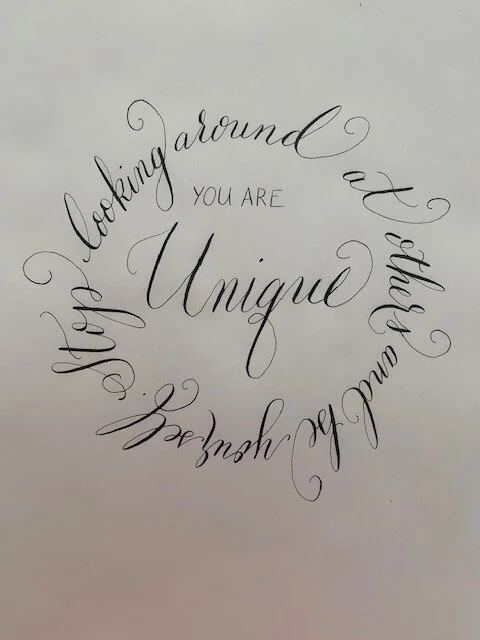 Stop looking around at others and be yourself.
YOU ARE
Unique